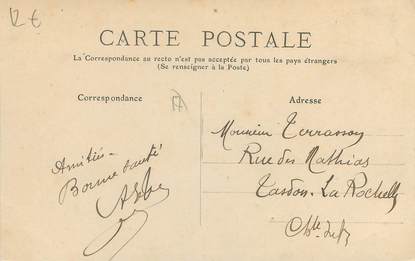 12 €
CARTE POSTALE
La Correspondance au recto n'est pas acceptée par tous les pays étrangers
(Se renseigner à la Poste)
Correspondance
Adresse
Amitiés -
Bonne santé
Monsieur Terrasson
Rue des Mathias
Tasdon - La Rochelle
Chte Infre